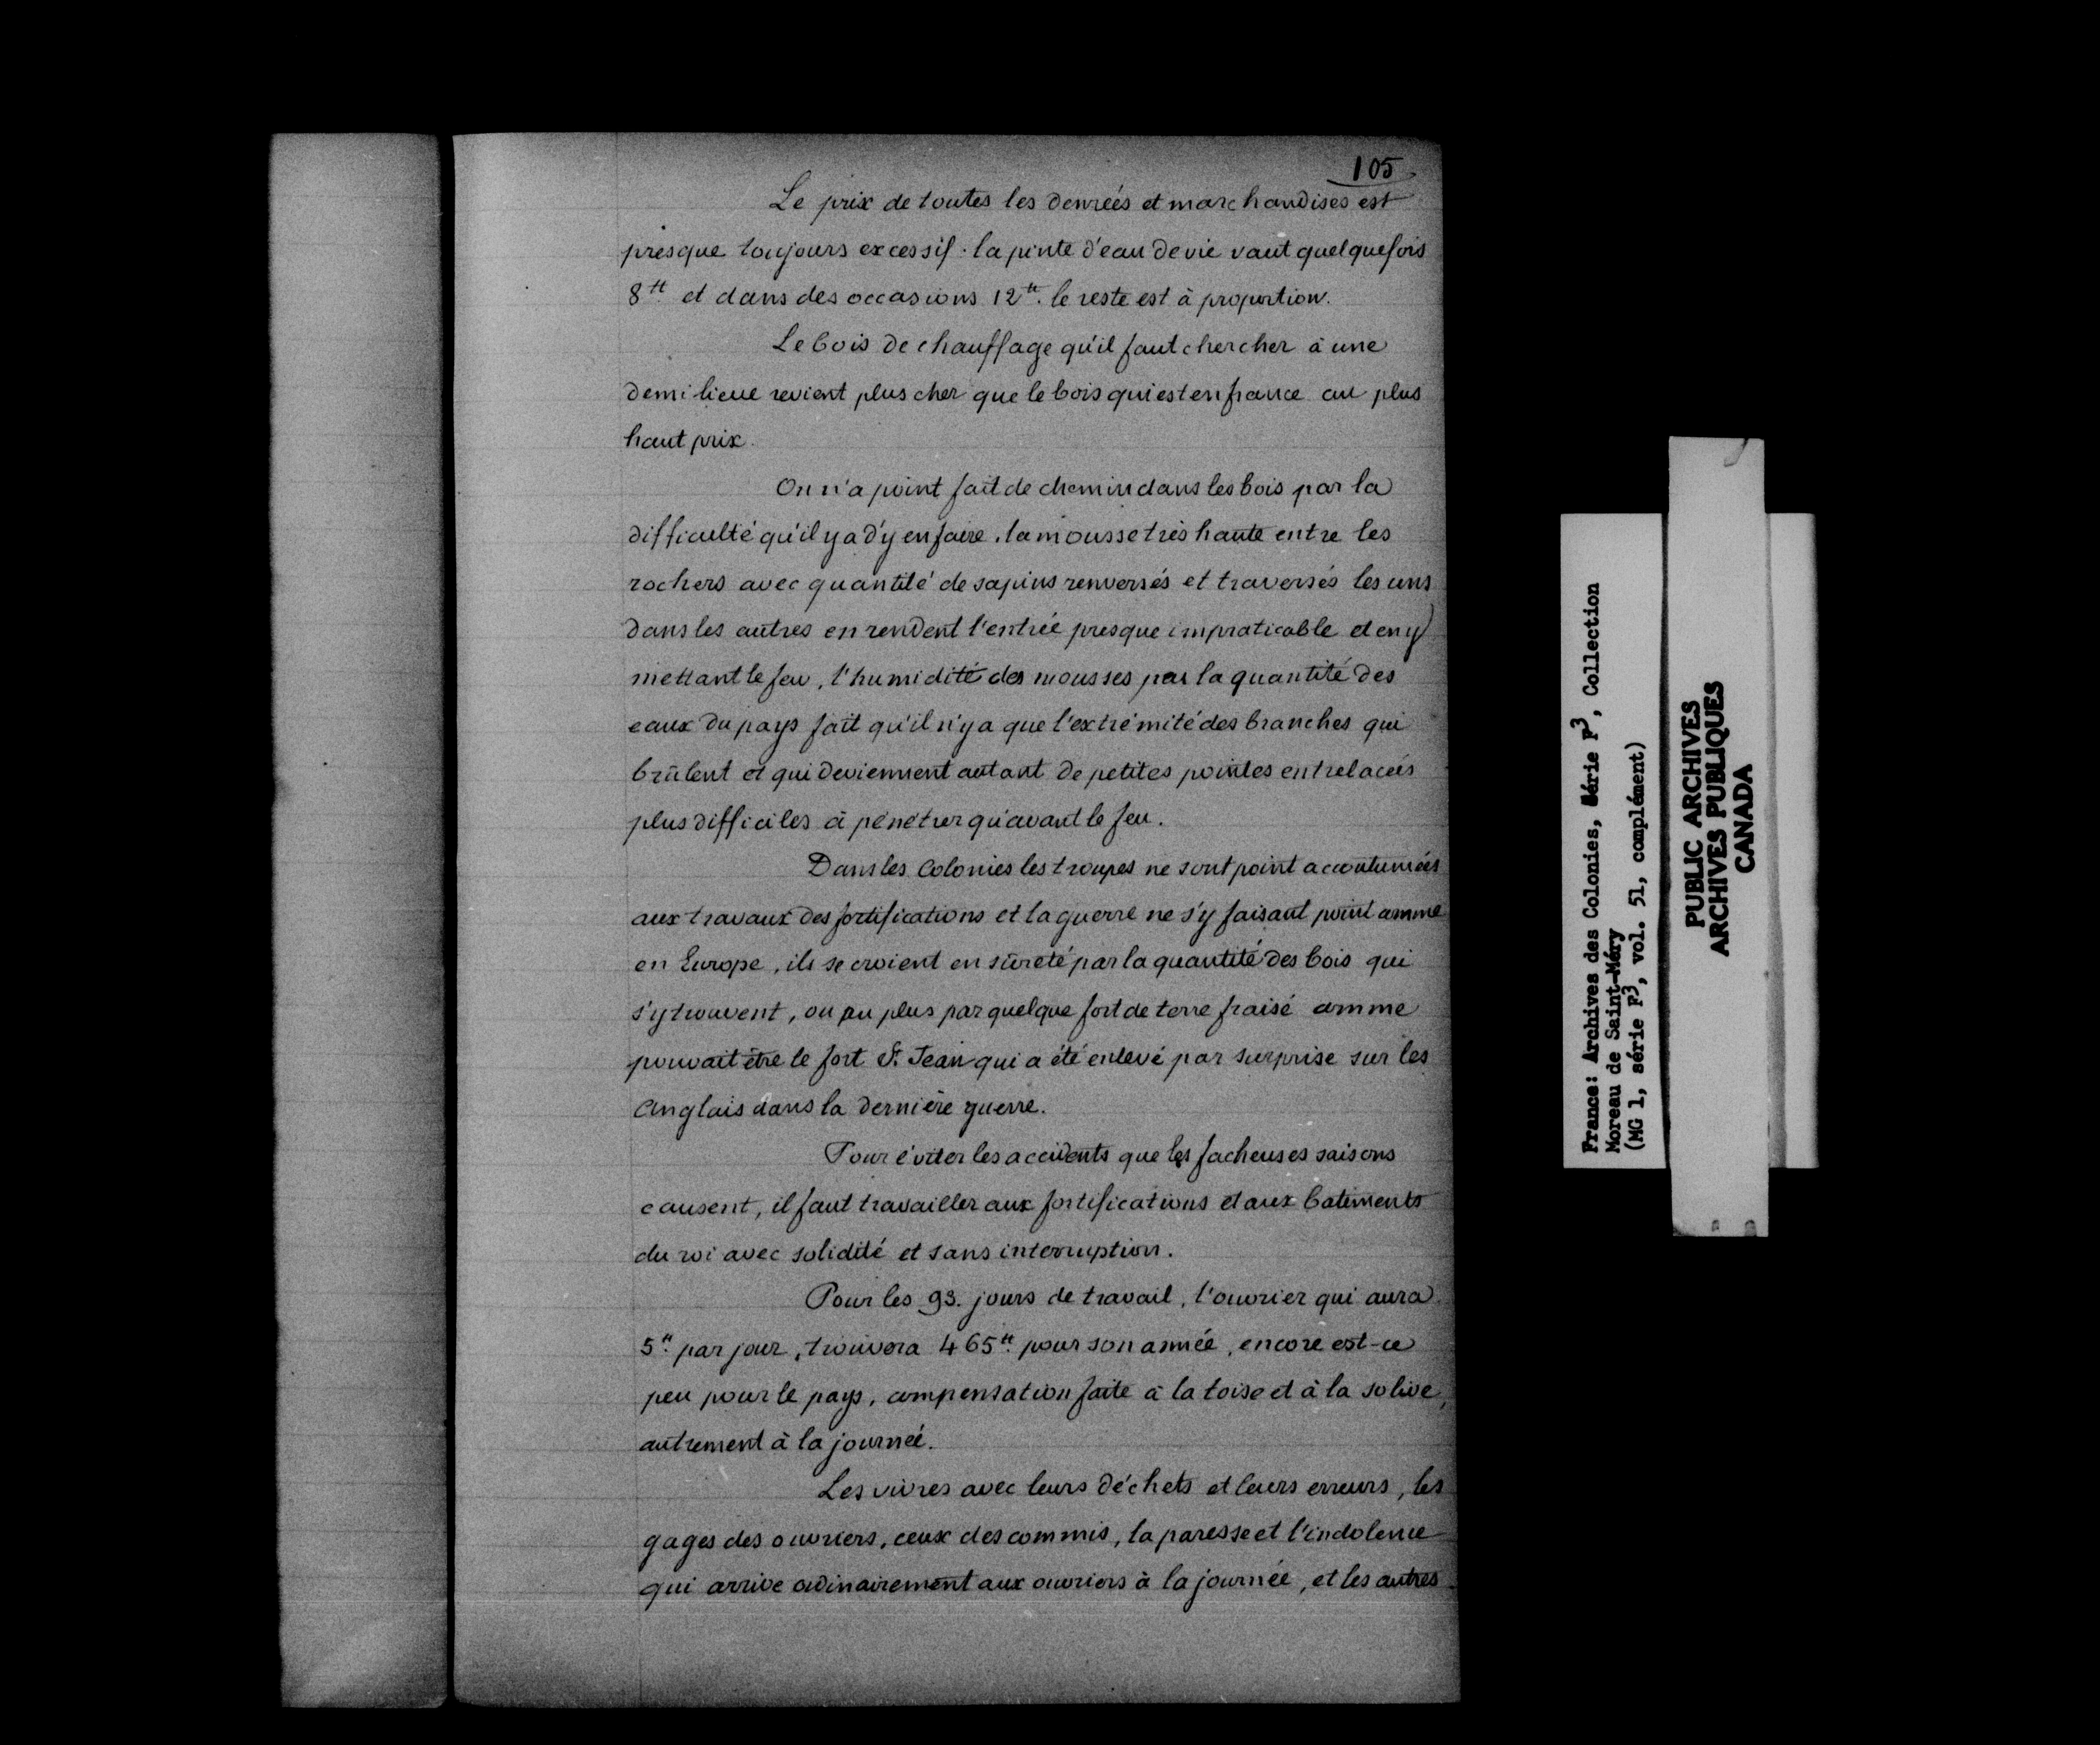 105
Le prix de toutes les denrées et marchandises est
presque toujours excessif. la pinte d'eau de vie vaut quelquefois
8tt et dans des occasions 12tt. le reste est à proportion.
Le bois de chauffage qu'il faut chercher à une
demi lieue revient plus cher que le bois qui est en france au plus
haut prix.
On n'a point fait de chemin dans les bois par la
difficulté qu'il y a d'y en faire. la mousse très haute entre les
rochers avec quantité de sapins renversés et traversés les uns
dans les autres en rendent l'entrée presque impraticable et en y
mettant le feu, l'humidité des mousses par la quantité des
eaux du pays fait qu'il n'y a que l'extrémité des branches qui
brûlent et qui deviennent autant de petites pointes entrelacées
plus difficiles à pénétrer qu'avant le feu.
Dans les Colonies les troupes ne sont point accoutumées
aux travaux des fortifications et la guerre ne s'y faisant point comme
en Europe, ils se croient en sûreté par la quantité des bois qui
s'y trouvent, ou au plus par quelque fort de terre fraisé comme
pouvait être le fort St. Jean qui a été enlevé par surprise sur les
anglais dans la dernière guerre.
Pour éviter les accidents que les facheuses saisons
causent, il faut travailler aux fortifications et aux batiments
du roi avec solidité et sans interruption.
Pour les 93. jours de travail, l'ouvrier qui aura
5tt par jour, trouvera 465tt pour son année, encore est-ce
peu pour le pays, compensation faite à la toise et à la solive,
autrement à la journée.
Les vivres avec leurs déchets et leurs erreurs, les
gages des ouvriers, ceux des commis, la paresse et l'indolence
qui arrive ordinairement aux ouvriers à la journée, et les autres
France: Archives des Colonies, Série F3, Collection
Moreau de Saint-Méry
(MG 1, série F3, vol. 51, complément)
PUBLIC ARCHIVES
ARCHIVES PUBLIQUES
CANADA